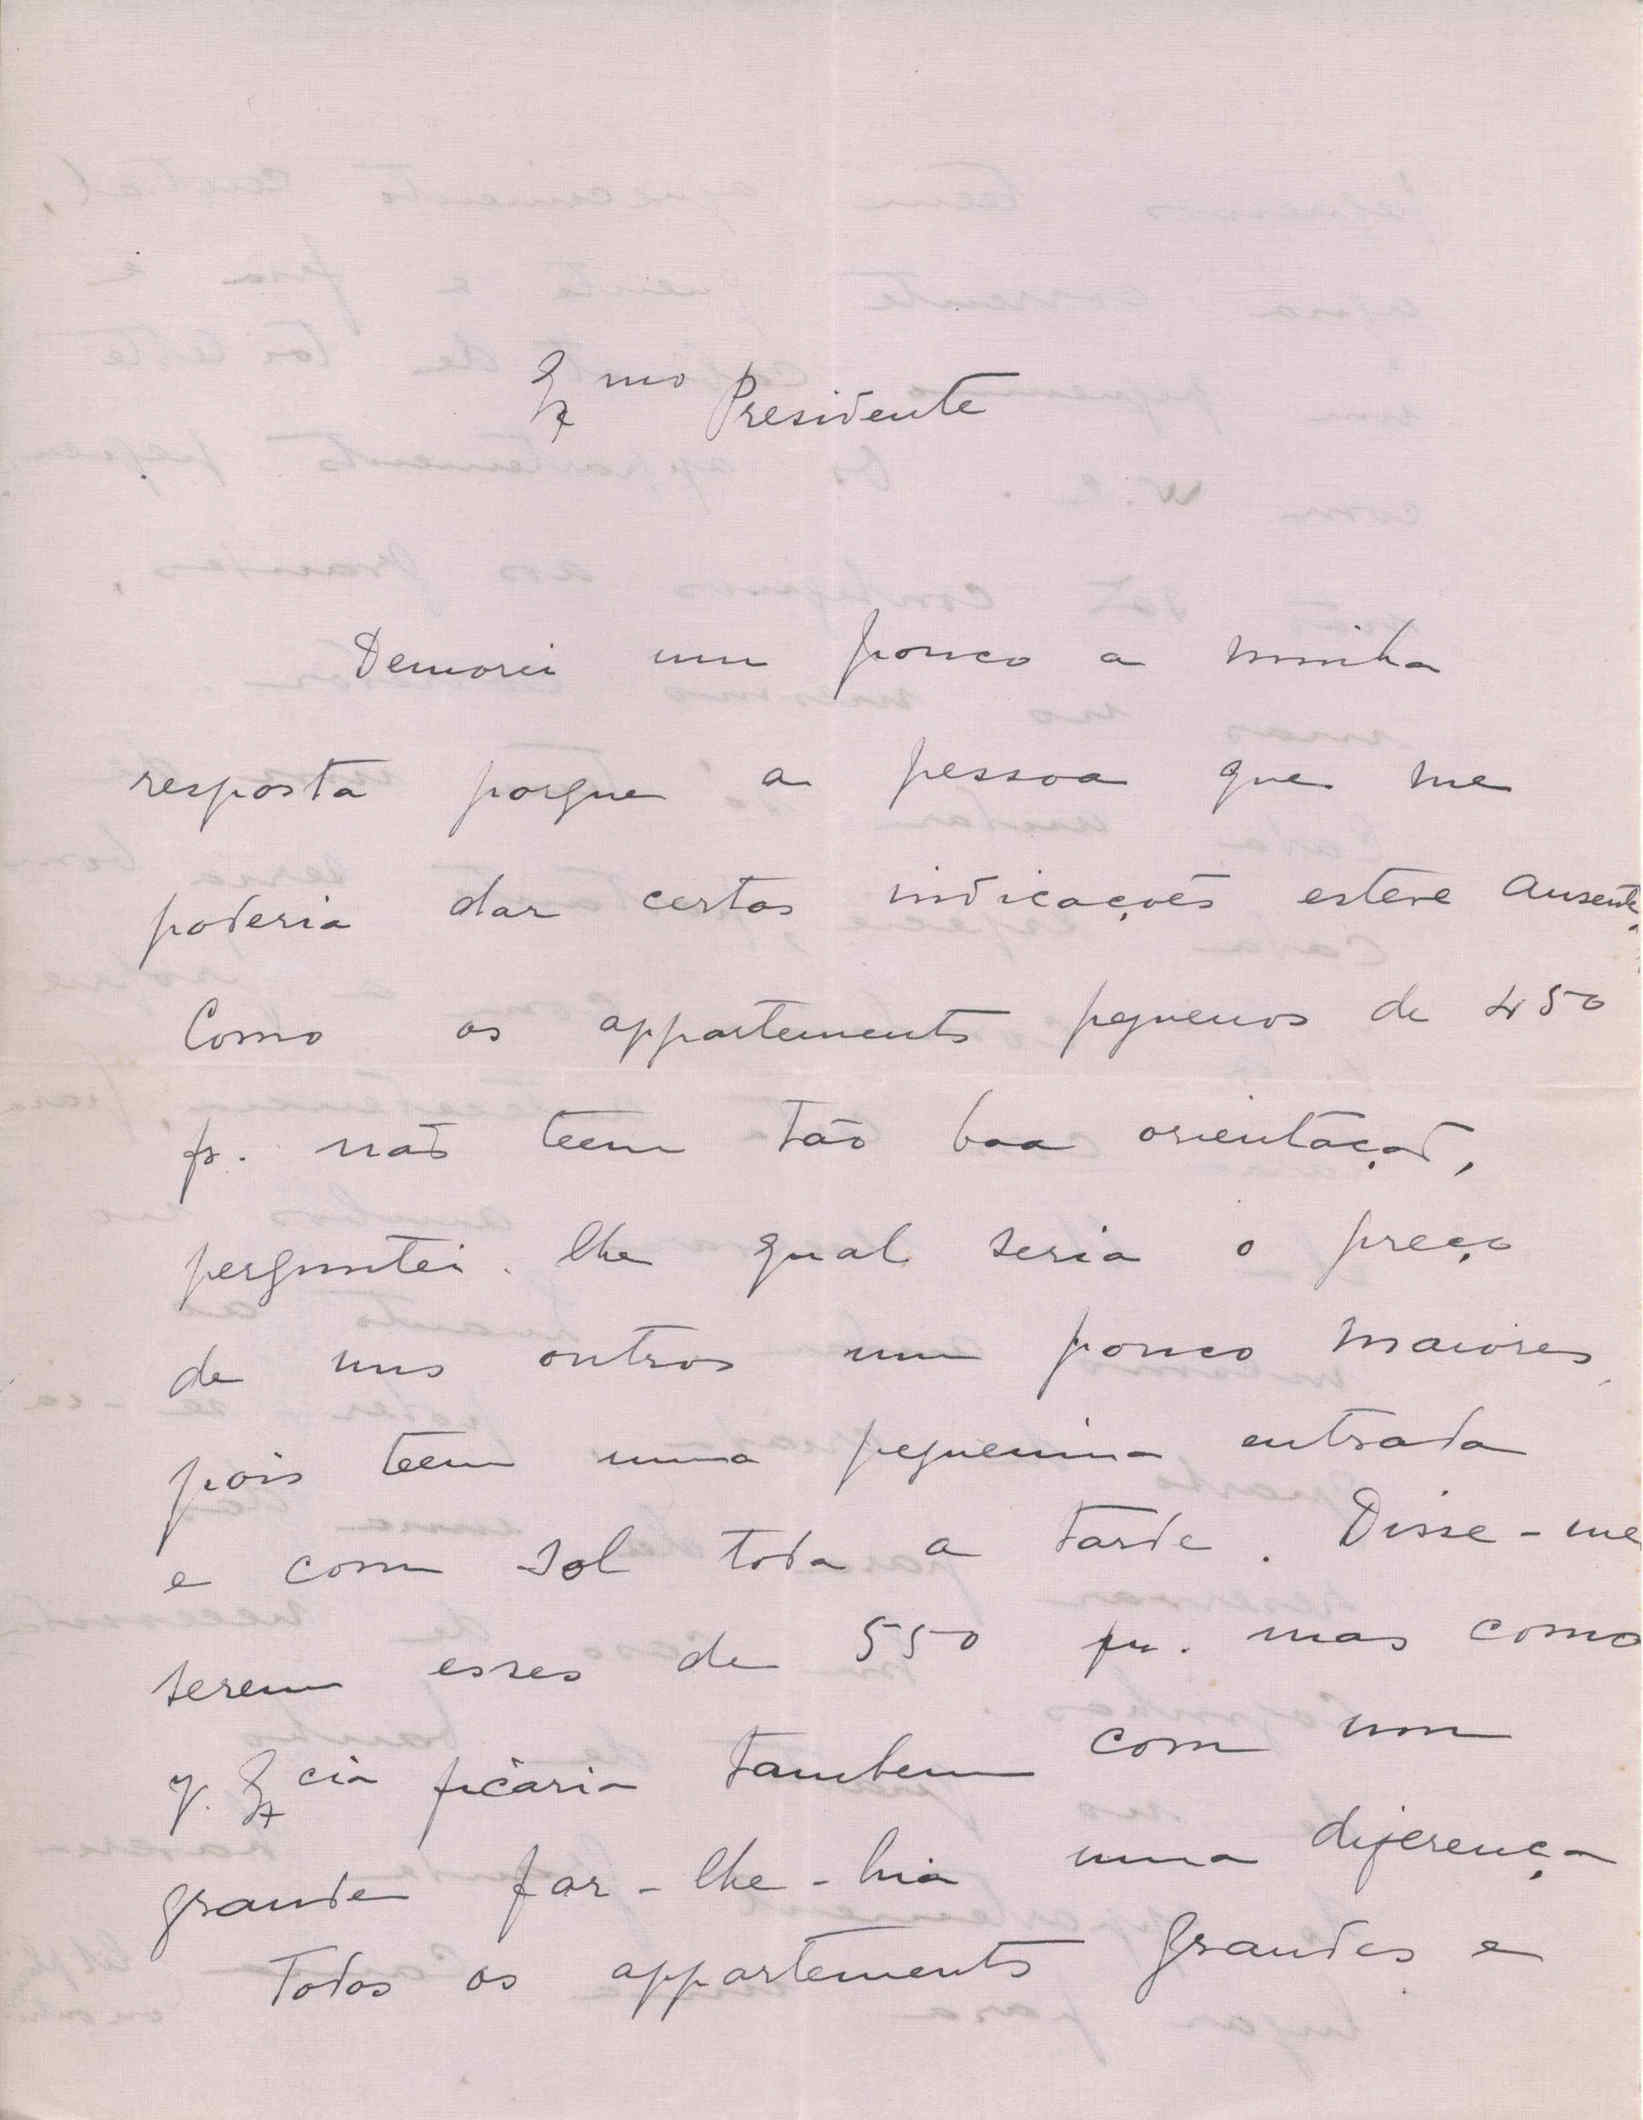 Exmo Presidente
Demorei um pouco a minha
resposta porque a pessoa que me
poderia dar certas indicações esteve ausente.
Como os appartements pequenos de 450
fr. não teem tão boa orientação,
perguntei-lhe qual seria o preço
de uns outros um pouco maiores,
pois teem uma pequenina entrada
e com sol toda a tarde. Disse-me
serem esses de 550 fr. mas como
V. Excia ficaria tambem com um
grande far-lhe-hia uma diferença
Todos os appartements grandes e